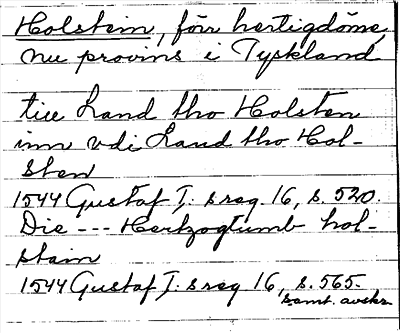 Holstein, förr hertigdöme,
nu provins i Tyskland
till Land tho Holsten
inn vdi Land tho Hol-
sten
1544 Gustaf I:s reg. 16, s. 520.
Die --- Hertzogtumb hol-
stain
1544 Gustaf I:s reg 16, s. 565.
samt. avskr.